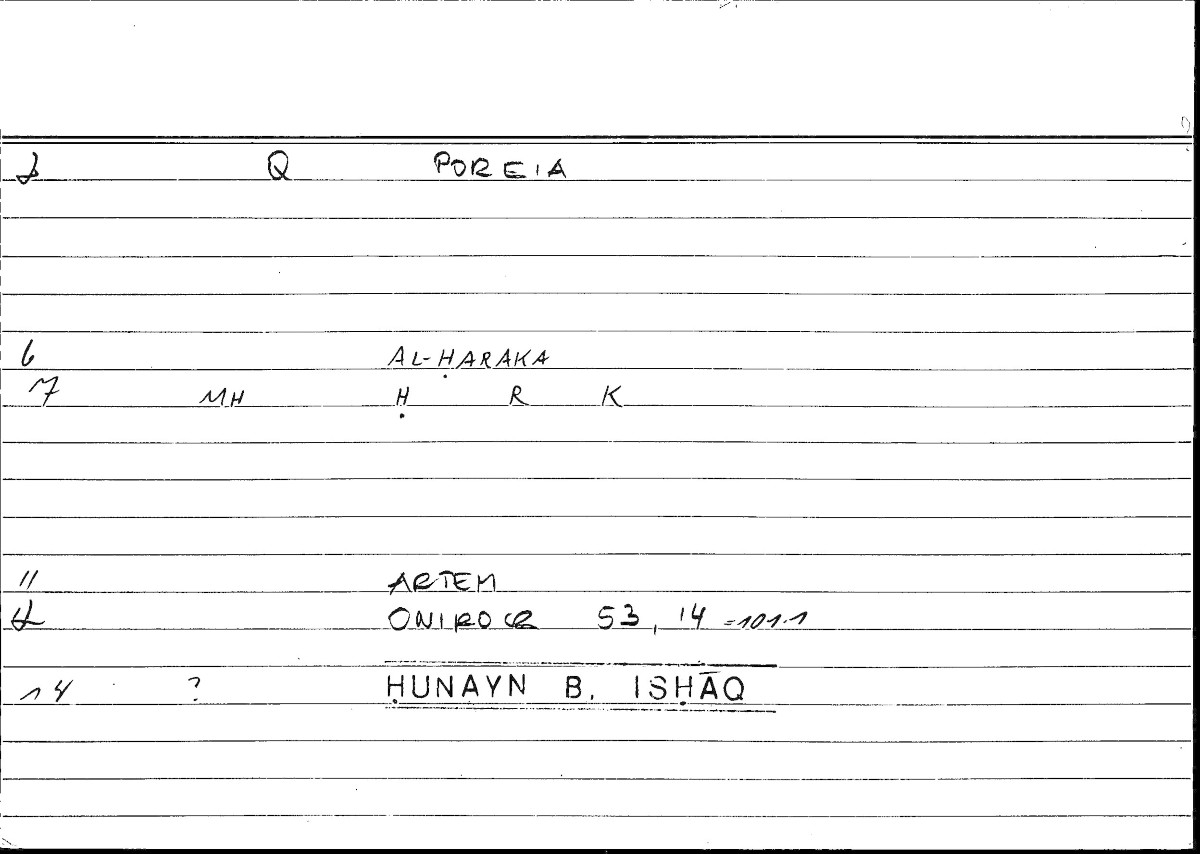 2 Q POREIA
6 AL-ḤARAKA
7 MH Ḥ R K
11 ARTEM
12 ONIROCR 53, 14 =101.1
14 ? ḤUNAYN B. ISḤĀQ